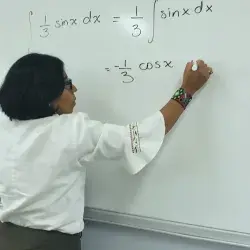 ∫ 1/3 sinx dx = 1/3 ∫ sinx dx
= -1/3 cosx